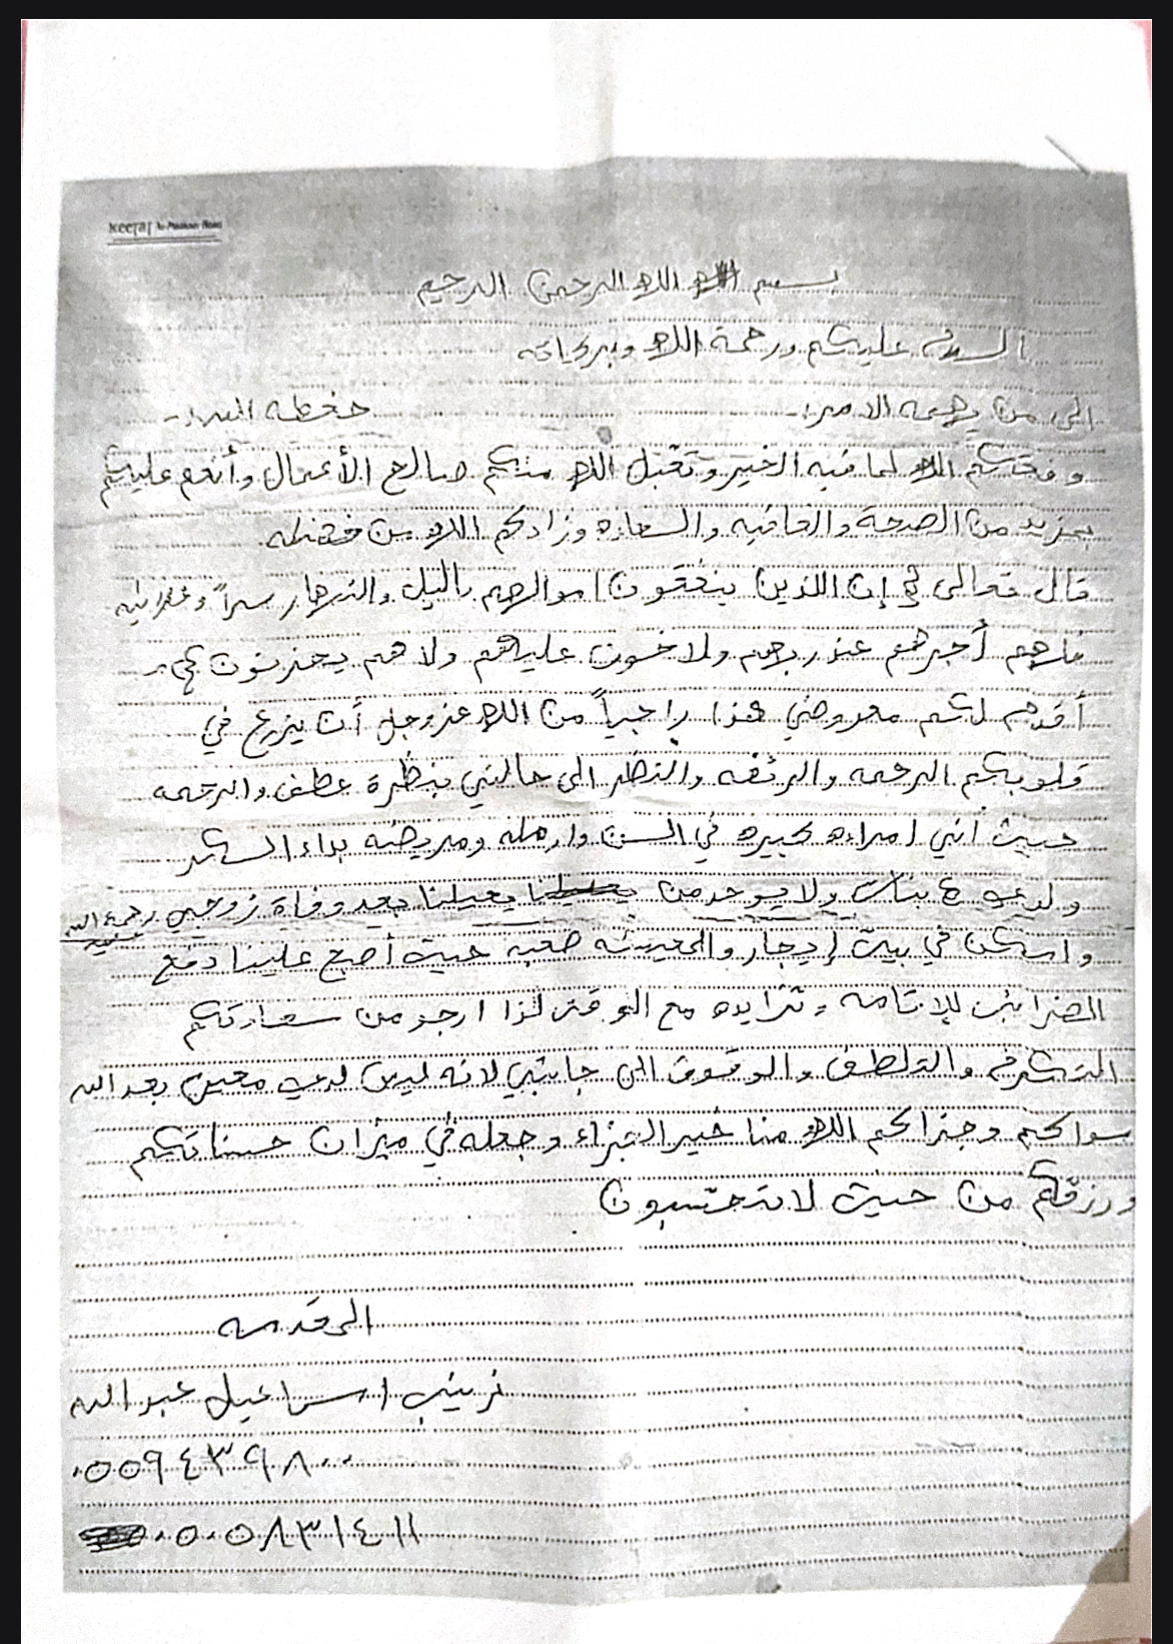 بسم الله الرحمن الرحيم
السلام عليكم ورحمة الله وبركاته
الى من يهمه الامر حفظه الله
وفقكم الله لما فيه الخير وتقبل الله منكم صالح الأعمال وأنعم عليكم
بمزيد من الصحة والعافيه والسعاده وزادكم الله من فضله
قال تعالى إن اللذين ينفقون اموالهم باليل والنهار سراً وعلانيه
فلهم أجرهم عند ربهم ولا خوف عليهم ولا هم يحزنون
أقدم لكم معروضي هذا راجياً من الله عز وجل أن يزرع في
قلوبكم الرحمه والرئفه والنظر الى حالتي بنظرة عطف والرحمه
حيث أنني امراءه كبيره في السن وارمله ومريضه بداء السكر
ولدي بنات ولا يوجد من يعيلنا بعد وفاة زوجي رحمة الله عليه
واسكن في بيت إيجار والمعيشه صعبه حيث أصبح علينا دفع
الضرائب للإقامه وتزايده مع الوقت لذا ارجو من سعادتكم
التكرم والتلطف والوقوف الى جانبي لانه ليس لدي معين بعد الله
سواكم وجزاكم الله منا خير الجزاء وجعله في ميزان حسناتكم
ورزقكم من حيث لا تحتسبون
المقدمه
زينب اسماعيل عبدالله
٠٥٥٩٤٣٩٨٠٠
٠٥٠٥٨٣١٤١١